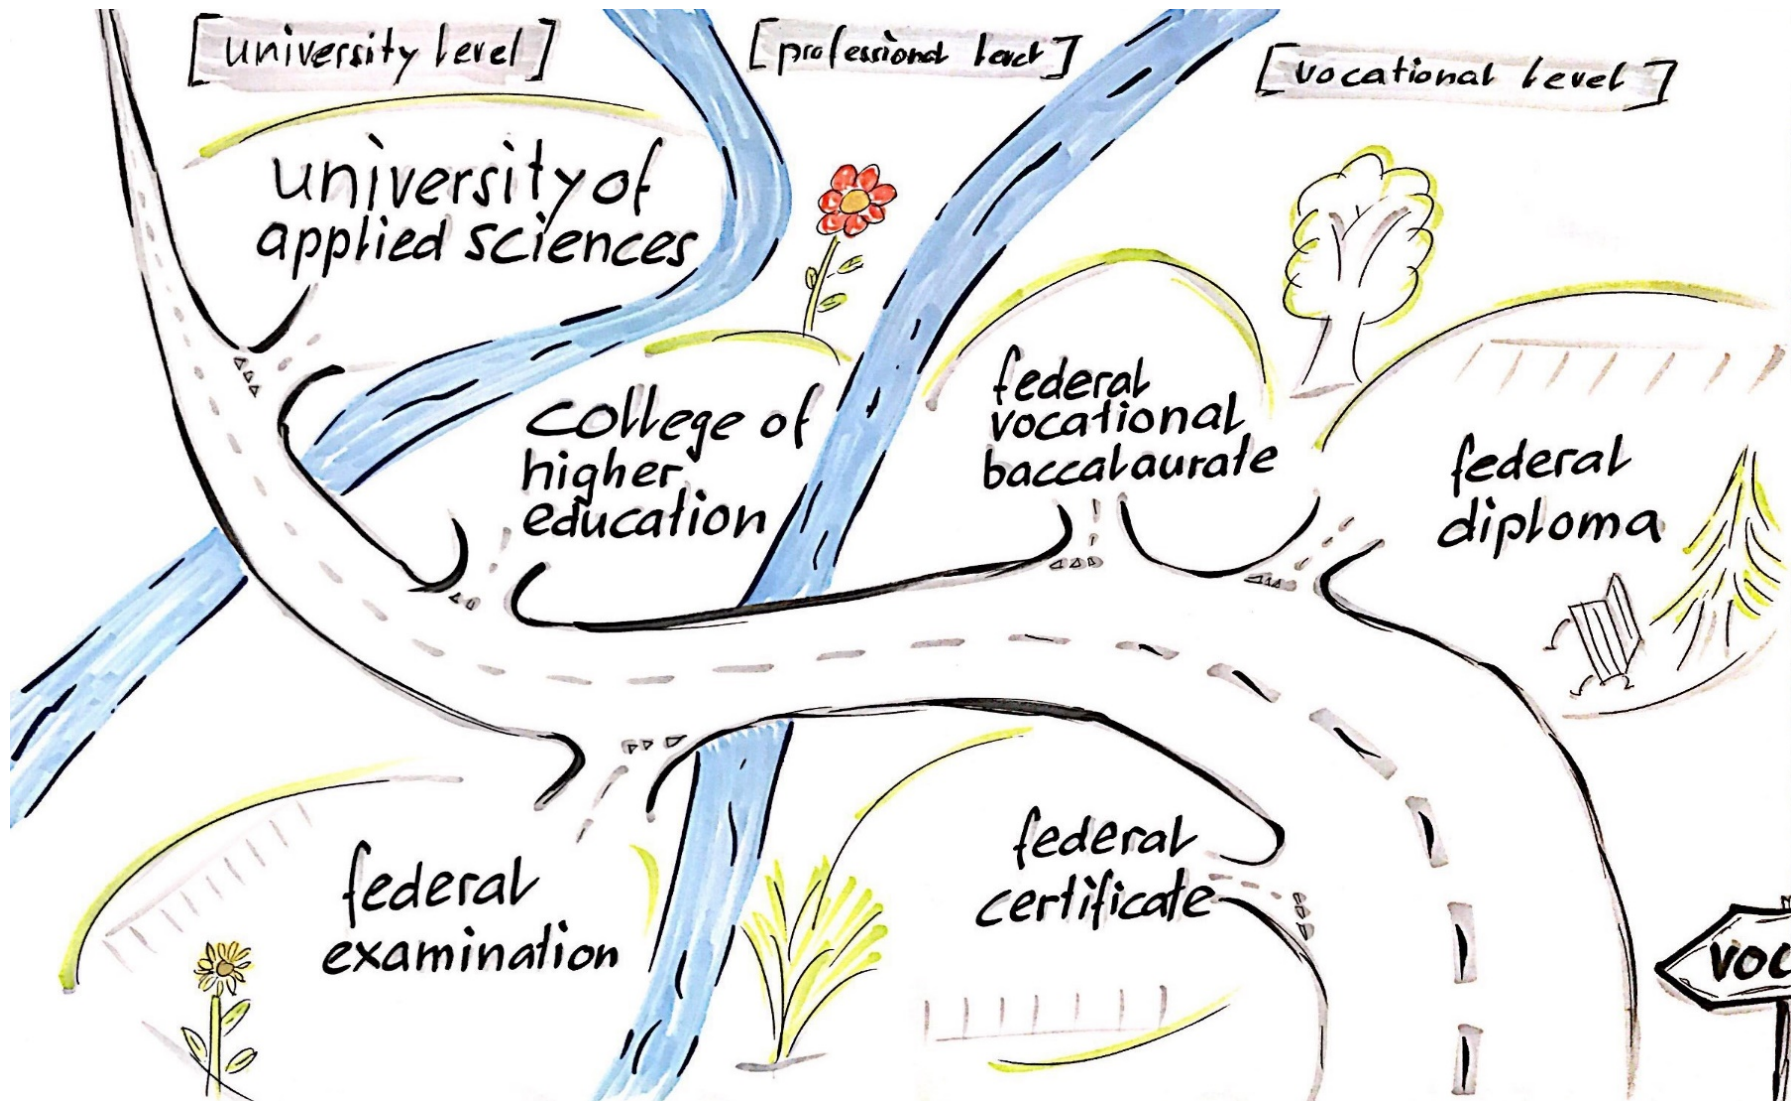 [university level]
[professional level]
[vocational level]
university of
applied sciences
college of
higher
education
federal
vocational
baccalaurate
federal
diploma
federal
examination
federal
certificate
VOC